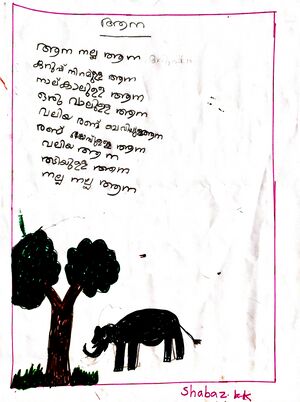 ആന
ആന നല്ല ആന
കറുപ്പ് നിറമുള്ള ആന
നാല്കാലുള്ള ആന
ഒരു വാലുള്ള ആന
വലിയ രണ്ട് ചെവിയുള്ള ആന
രണ്ട് ആന
വലിയ ആ ന
ആന
നല്ല നല്ല ആന
Shabaz.kk